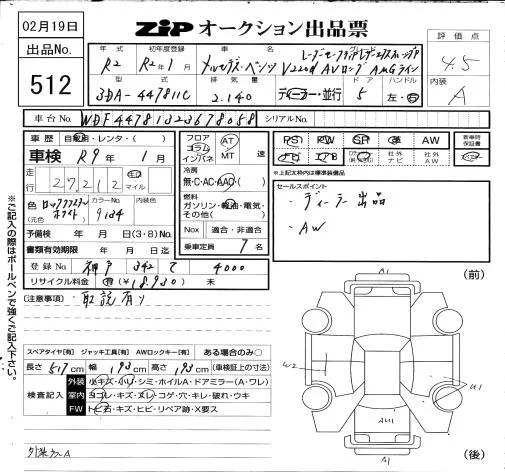 02月19日
ZIP オークション出品票
出品No.
512
評価点
4.5
内装
A
年式 初年度登録 車名
R2 R2年1月 メルセデス・ベンツ V220d AVロング AMGライン
型式 排気量 ドア ハンドル
3DA-447811C 2.140 ディーラー・並行 5 左・右
車台No. WDF44781323678058 シリアルNo.
車歴 自家用・レンタ・( )
車検 R9年1月
走行 27,212 km マイル
色(元色) ロッククリスタルホワイト カラーNo. 9134 内装色
予備検 年 月 日(3・8)No.
書類有効期限 年 月 日迄
登録No. 神戸 342 て 4000
リサイクル料金 有(¥18,930) 未
フロア コラム インパネ AT MT 速
冷房 無・C・AC・AAC・( )
燃料 ガソリン・軽油・電気・その他( )
Nox 適合・非適合
乗車定員 7名
PS PW SR 革 AW
社外ナビ 社外AW
新車時保証書
*上記太枠内は標準装備品
セールスポイント
・ディーラー出品
・AW
(注意事項)・取説有り
スペアタイヤ[有] ジャッキ工具[有] AWロックキー[有] ある場合のみ○
長さ 517cm 幅 193cm 高さ 193cm (車検証上の寸法)
検査記入
外装 小キズ・小U・シミ・ホイルA・ドアミラー(A・ワレ)
室内 ヨゴレ・キズ・スレ・コゲ・穴・キレ・破れ・ウキ
FW トビ石・キズ・ヒビ・リペア跡・X要ス
※ご記入の際はボールペンで強くご記入下さい。
(前)
A1
W2
U1
A1
(後)